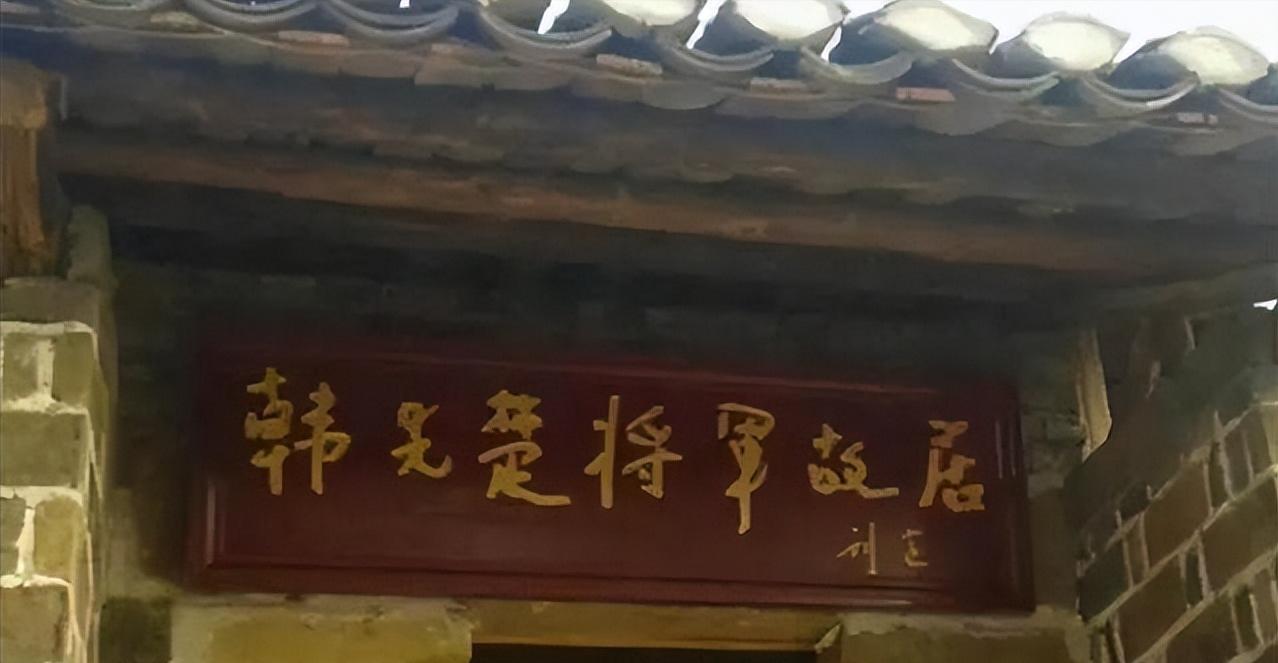 韩先楚将军故居